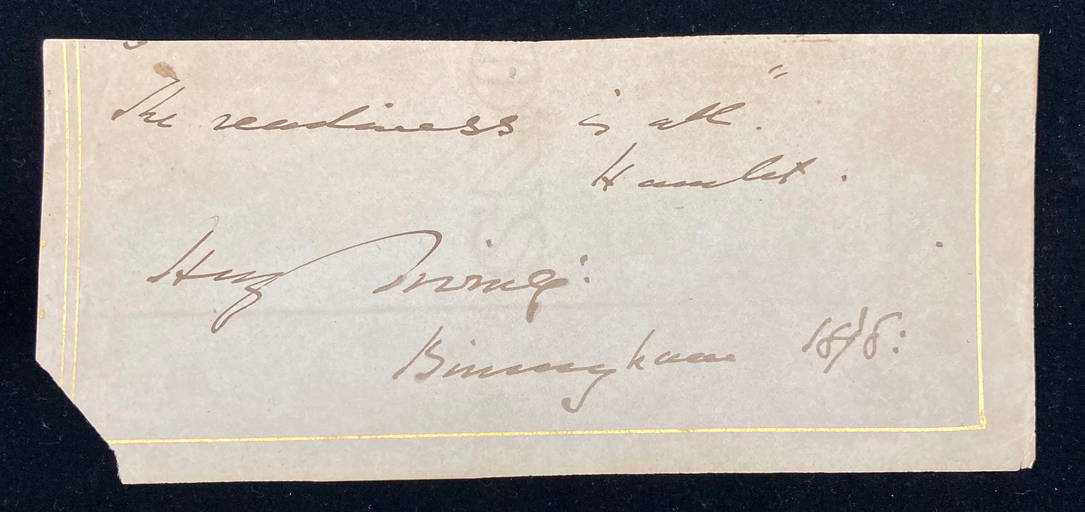 The readiness is all."
Hamlet.
Henry Irving:
Birmingham 1878: